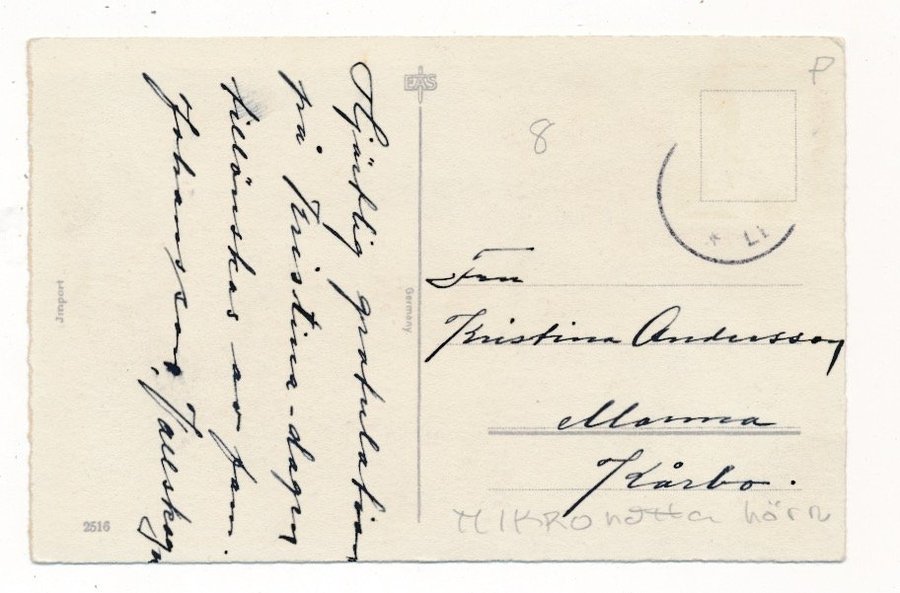 Hjärtlig gratulation
på Kristina-dagen
tillönskas av fam.
Johansson, Tallskogen
EAS
Germany
Jmport
2516
P
8
* LI
Fru
Kristina Andersson
Morma
Kårbo.
MIKRO nötta hörn